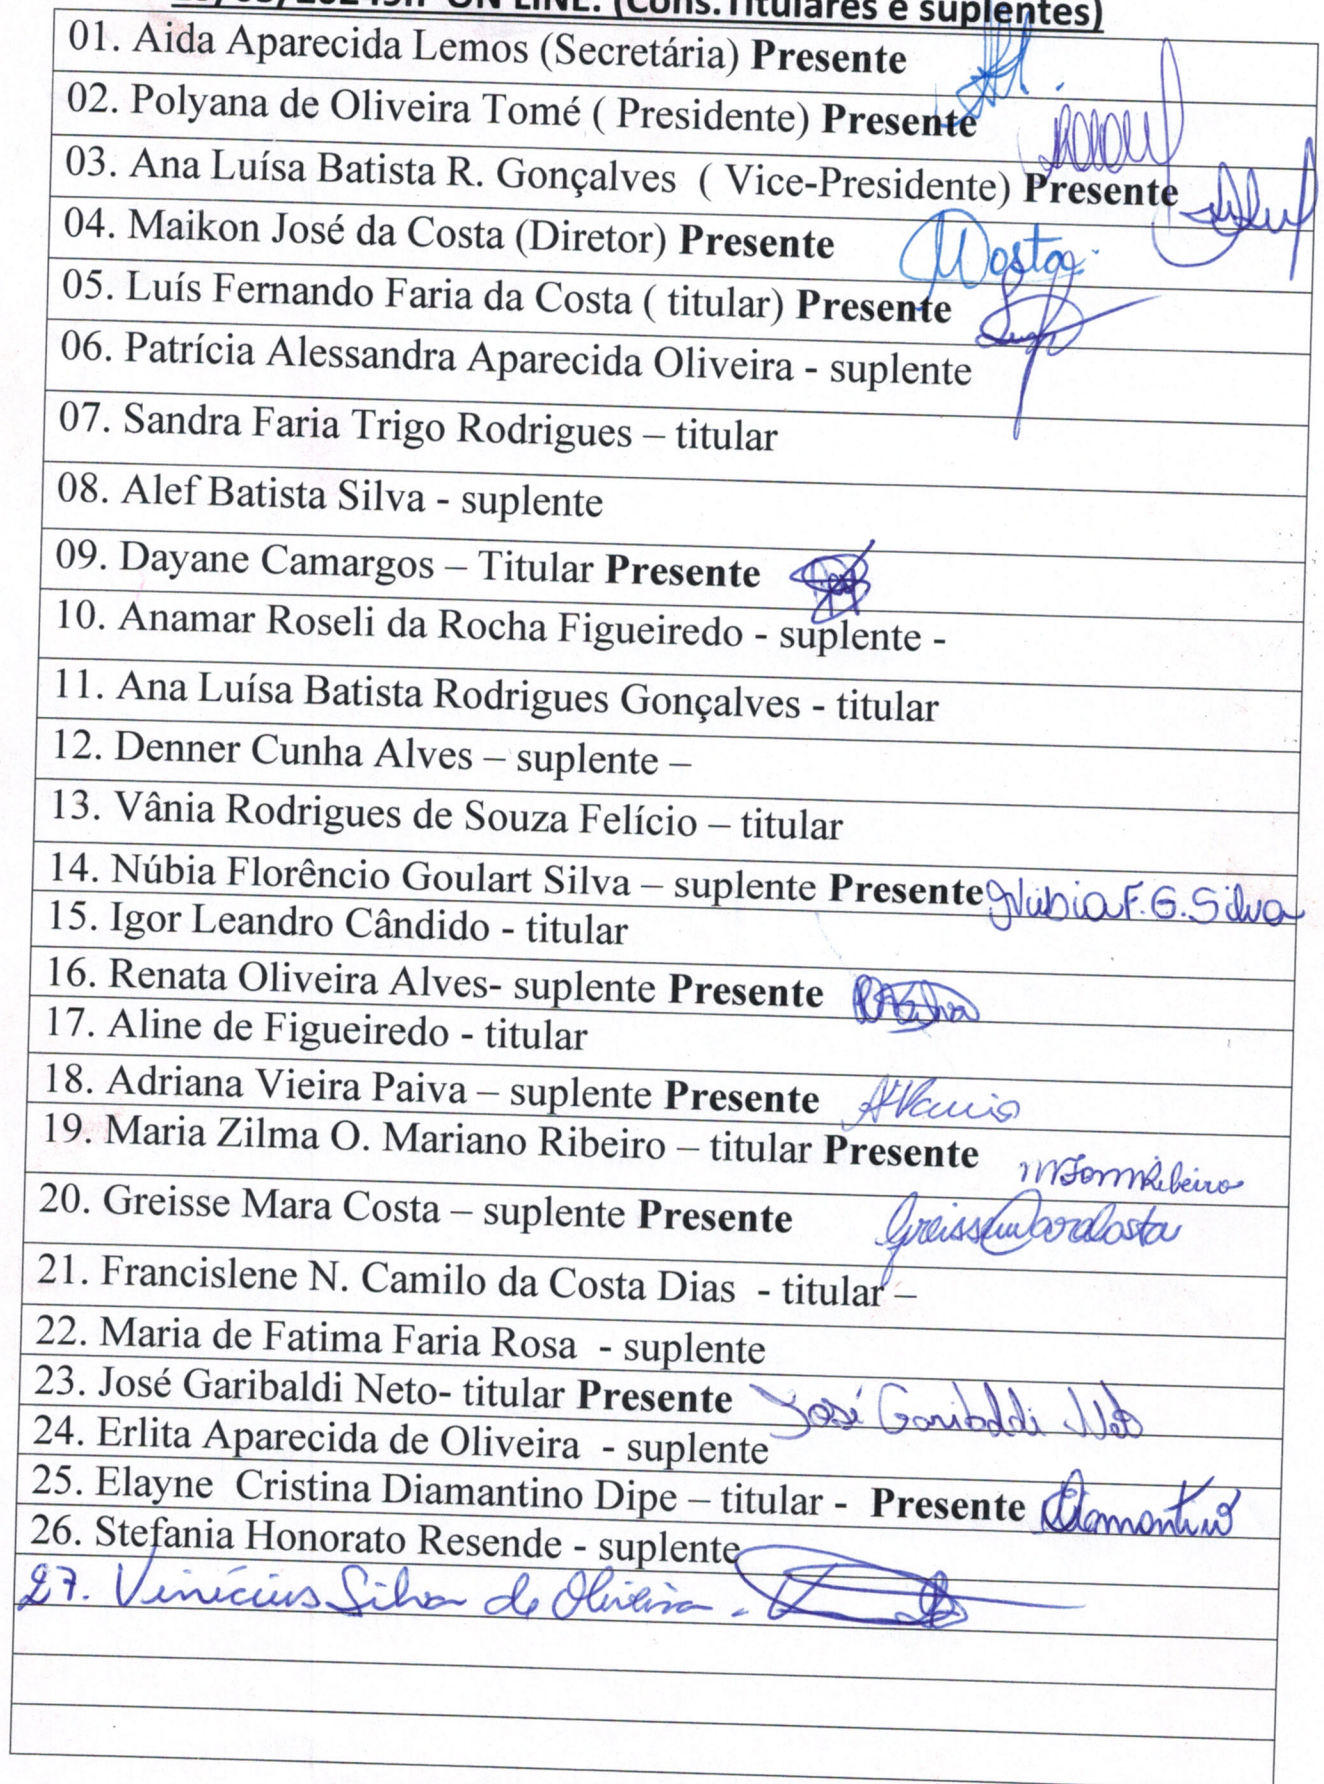 ON LINE. (Cons.Titulares e suplentes)
01. Aida Aparecida Lemos (Secretária) Presente
02. Polyana de Oliveira Tomé ( Presidente) Presente
03. Ana Luísa Batista R. Gonçalves ( Vice-Presidente) Presente
04. Maikon José da Costa (Diretor) Presente Costa
05. Luís Fernando Faria da Costa ( titular) Presente
06. Patrícia Alessandra Aparecida Oliveira - suplente
07. Sandra Faria Trigo Rodrigues – titular
08. Alef Batista Silva - suplente
09. Dayane Camargos – Titular Presente
10. Anamar Roseli da Rocha Figueiredo - suplente -
11. Ana Luísa Batista Rodrigues Gonçalves - titular
12. Denner Cunha Alves – suplente –
13. Vânia Rodrigues de Souza Felício – titular
14. Núbia Florêncio Goulart Silva – suplente Presente Núbia F. G. Silva
15. Igor Leandro Cândido - titular
16. Renata Oliveira Alves- suplente Presente
17. Aline de Figueiredo - titular
18. Adriana Vieira Paiva – suplente Presente
19. Maria Zilma O. Mariano Ribeiro – titular Presente
20. Greisse Mara Costa – suplente Presente Greisse Mara Costa
21. Francislene N. Camilo da Costa Dias - titular –
22. Maria de Fatima Faria Rosa - suplente
23. José Garibaldi Neto- titular Presente José Garibaldi Neto
24. Erlita Aparecida de Oliveira - suplente
25. Elayne Cristina Diamantino Dipe – titular - Presente Diamantino
26. Stefania Honorato Resende - suplente
27. Vinícius Silva de Oliveira -